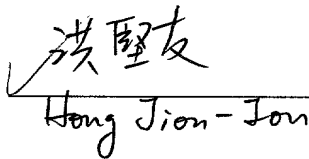 洪堅友
Hong Jion-Jon